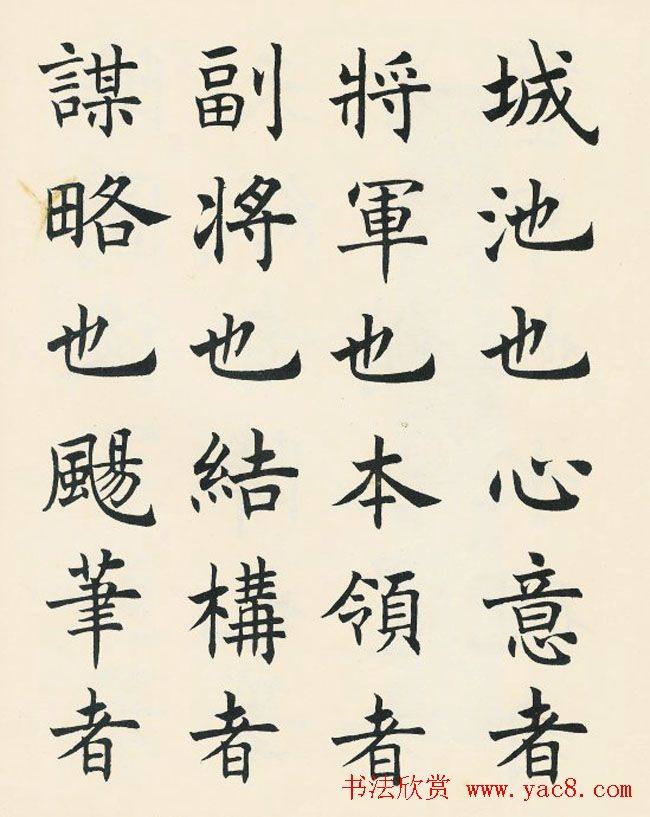 城池也心意者
將軍也本領者
副將也結構者
謀略也颺筆者
书法欣赏 www.yac8.com